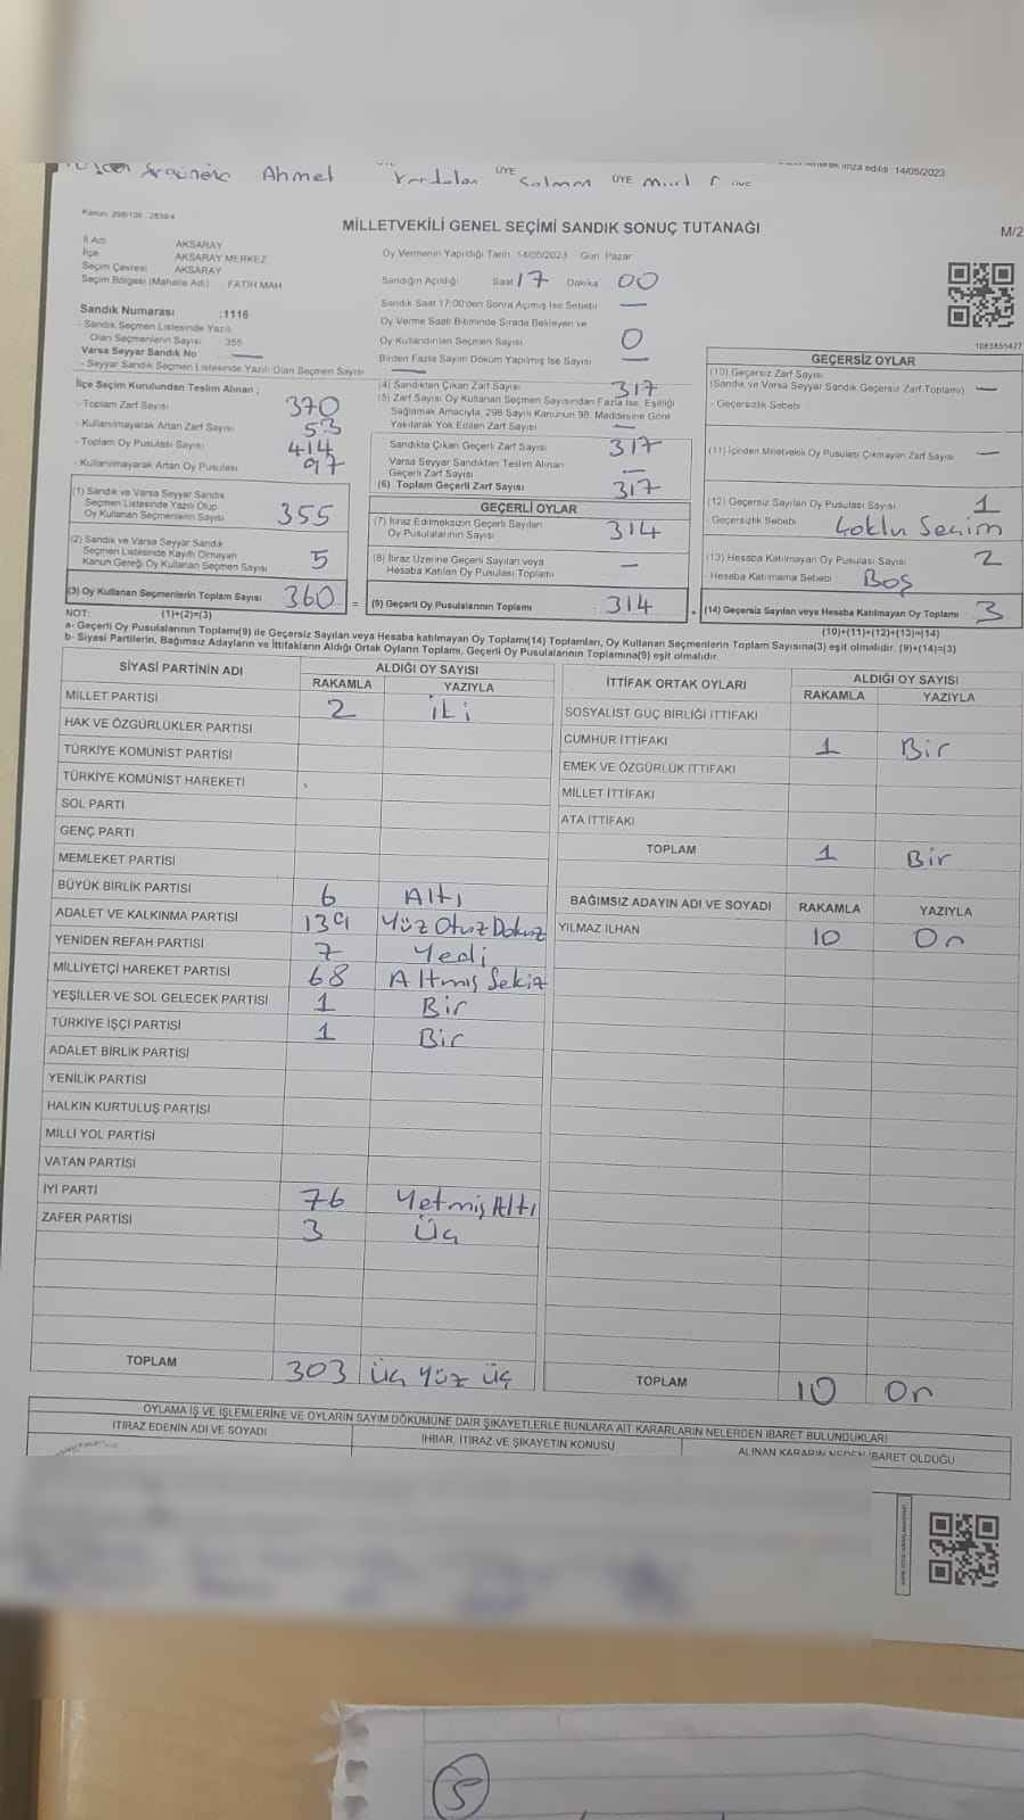 Ahmet ÜYE Salman ÜYE ÜYE
14/05/2023
MİLLETVEKİLİ GENEL SEÇİMİ SANDIK SONUÇ TUTANAĞI
M/2
İl Adı AKSARAY
İlçe AKSARAY MERKEZ
Seçim Çevresi AKSARAY
Seçim Bölgesi (Mahalle Adı) FATİH MAH
Sandık Numarası :1116
- Sandık Seçmen Listesinde Yazılı
Olan Seçmenlerin Sayısı 355
Varsa Seyyar Sandık No —
- Seyyar Sandık Seçmen Listesinde Yazılı Olan Seçmen Sayısı —
Oy Vermenin Yapıldığı Tarih 14/05/2023 Gün Pazar
Sandığın Açıldığı Saat 17 Dakika 00
Sandık Saat 17:00'den Sonra Açılmış İse Sebebi —
Oy Verme Saati Bitiminde Sırada Bekleyen ve
Oy Kullandırılan Seçmen Sayısı 0
Birden Fazla Sayım Döküm Yapılmış İse Sayısı —
1083855427
İlçe Seçim Kurulundan Teslim Alınan ;
- Toplam Zarf Sayısı 370
- Kullanılmayarak Artan Zarf Sayısı 53
- Toplam Oy Pusulası Sayısı 414
- Kullanılmayarak Artan Oy Pusulası 97
(1) Sandık ve Varsa Seyyar Sandık
Seçmen Listesinde Yazılı Olup
Oy Kullanan Seçmenlerin Sayısı 355
(2) Sandık ve Varsa Seyyar Sandık
Seçmen Listesinde Kayıtlı Olmayan
Kanun Gereği Oy Kullanan Seçmen Sayısı 5
(3) Oy Kullanan Seçmenlerin Toplam Sayısı 360 =
(1)+(2)=(3)
(4) Sandıktan Çıkan Zarf Sayısı 317
(5) Zarf Sayısı Oy Kullanan Seçmen Sayısından Fazla İse, Eşitliği
Sağlamak Amacıyla, 298 Sayılı Kanunun 98. Maddesine Göre
Yakılarak Yok Edilen Zarf Sayısı —
Sandıkta Çıkan Geçerli Zarf Sayısı 317
Varsa Seyyar Sandıktan Teslim Alınan
Geçerli Zarf Sayısı —
(6) Toplam Geçerli Zarf Sayısı 317
GEÇERLİ OYLAR
(7) İtiraz Edilmeksizin Geçerli Sayılan
Oy Pusulalarının Sayısı 314
(8) İtiraz Üzerine Geçerli Sayılan veya
Hesaba Katılan Oy Pusulası Toplamı —
(9) Geçerli Oy Pusulalarının Toplamı 314 +
GEÇERSİZ OYLAR
(10) Geçersiz Zarf Sayısı
(Sandık ve Varsa Seyyar Sandık Geçersiz Zarf Toplamı) —
- Geçersizlik Sebebi
(11) İçinden Milletvekili Oy Pusulası Çıkmayan Zarf Sayısı —
(12) Geçersiz Sayılan Oy Pusulası Sayısı 1
Geçersizlik Sebebi Çoklu Seçim
(13) Hesaba Katılmayan Oy Pusulası Sayısı 2
- Hesaba Katılmama Sebebi Boş
(14) Geçersiz Sayılan veya Hesaba Katılmayan Oy Toplamı 3
(10)+(11)+(12)+(13)=(14)
NOT:
a- Geçerli Oy Pusulalarının Toplamı(9) ile Geçersiz Sayılan veya Hesaba katılmayan Oy Toplamı(14) Toplamları, Oy Kullanan Seçmenlerin Toplam Sayısına(3) eşit olmalıdır. (9)+(14)=(3)
b- Siyasi Partilerin, Bağımsız Adayların ve İttifakların Aldığı Ortak Oyların Toplamı, Geçerli Oy Pusulalarının Toplamına(9) eşit olmalıdır.
SİYASİ PARTİNİN ADI ALDIĞI OY SAYISI
RAKAMLA YAZIYLA
MİLLET PARTİSİ 2 iki
HAK VE ÖZGÜRLÜKLER PARTİSİ
TÜRKİYE KOMÜNİST PARTİSİ
TÜRKİYE KOMÜNİST HAREKETİ
SOL PARTİ
GENÇ PARTİ
MEMLEKET PARTİSİ
BÜYÜK BİRLİK PARTİSİ 6 Altı
ADALET VE KALKINMA PARTİSİ 139 Yüz Otuz Dokuz
YENİDEN REFAH PARTİSİ 7 Yedi
MİLLİYETÇİ HAREKET PARTİSİ 68 Altmış Sekiz
YEŞİLLER VE SOL GELECEK PARTİSİ 1 Bir
TÜRKİYE İŞÇİ PARTİSİ 1 Bir
ADALET BİRLİK PARTİSİ
YENİLİK PARTİSİ
HALKIN KURTULUŞ PARTİSİ
MİLLİ YOL PARTİSİ
VATAN PARTİSİ
İYİ PARTİ 76 Yetmiş Altı
ZAFER PARTİSİ 3 Üç
TOPLAM 303 üç yüz üç
İTTİFAK ORTAK OYLARI ALDIĞI OY SAYISI
RAKAMLA YAZIYLA
SOSYALİST GÜÇ BİRLİĞİ İTTİFAKI
CUMHUR İTTİFAKI 1 Bir
EMEK VE ÖZGÜRLÜK İTTİFAKI
MİLLET İTTİFAKI
ATA İTTİFAKI
TOPLAM 1 Bir
BAĞIMSIZ ADAYIN ADI VE SOYADI RAKAMLA YAZIYLA
YILMAZ İLHAN 10 On
TOPLAM 10 On
OYLAMA İŞ VE İŞLEMLERİNE VE OYLARIN SAYIM DÖKÜMÜNE DAİR ŞİKAYETLERLE BUNLARA AİT KARARLARIN NELERDEN İBARET BULUNDUKLARI
İTİRAZ EDENİN ADI VE SOYADI İHBAR, İTİRAZ VE ŞİKAYETİN KONUSU ALINAN KARARIN NEDEN İBARET OLDUĞU
5